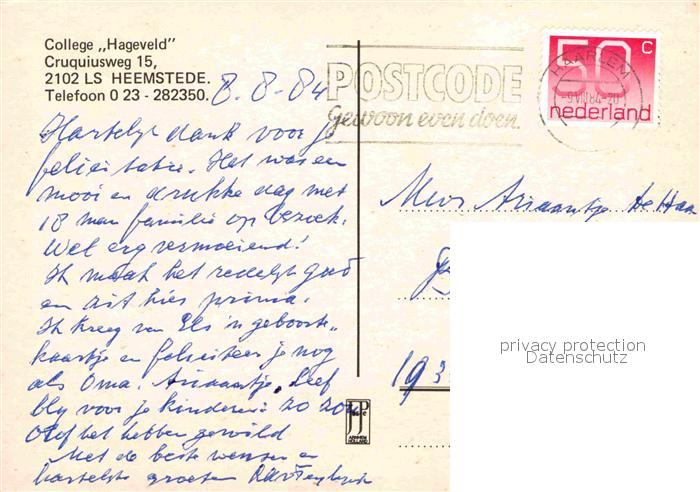 College „Hageveld”
Cruquiusweg 15,
2102 LS HEEMSTEDE.
Telefoon 0 23 - 282350.
8-8-84
POSTCODE
gewoon even doen.
HAARLEM
-9 VIII 84-20
50 C
nederland
Hartelijk dank voor je
felicitatie. Het was een
mooi en drukke dag met
18 man familie op bezoek.
Wel erg vermoeiend!
Ik maak het redelijk goed
en zit hier prima.
Ik kreeg van Els 'n geboorte-
kaartje en feliciteer je nog
als Oma! Ariaantje, leef
bly voor je kinderen: zo zou
Olof het hebben gewild
Met de beste wensen en
hartelijke groeten
Mevr Ariaantje de Haa
193
JosPe
ARNHEM
HOLLAND
privacy protection
Datenschutz